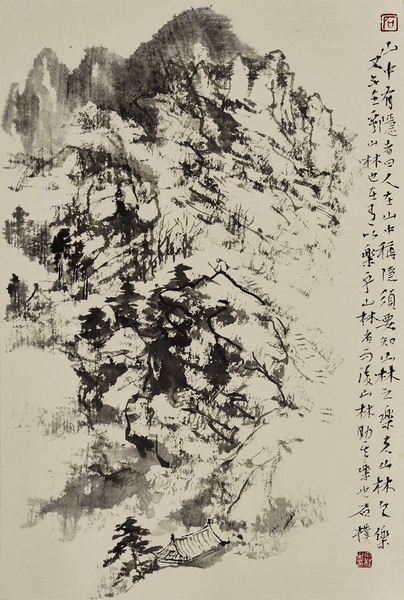 石
山中有隱者曰人在山中稱隱須要知山林之樂夫山林之樂
又不在山林也在有以樂乎山林者而後山林助其樂也